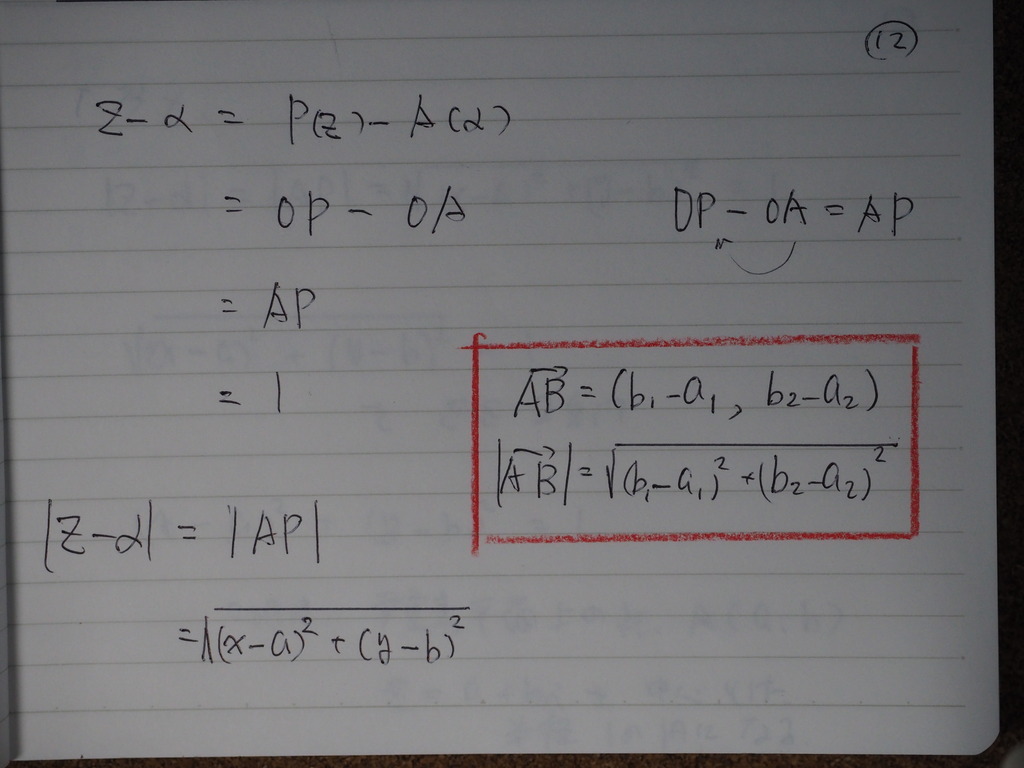 (12)
Z-α = P(z)-A(α)
= OP - OA
OP - OA = AP
= AP
= 1
AB = (b₁-a₁, b₂-a₂)
|AB| = √(b₁-a₁)² + (b₂-a₂)²
|Z-α| = |AP|
= √(x-a)² + (y-b)²